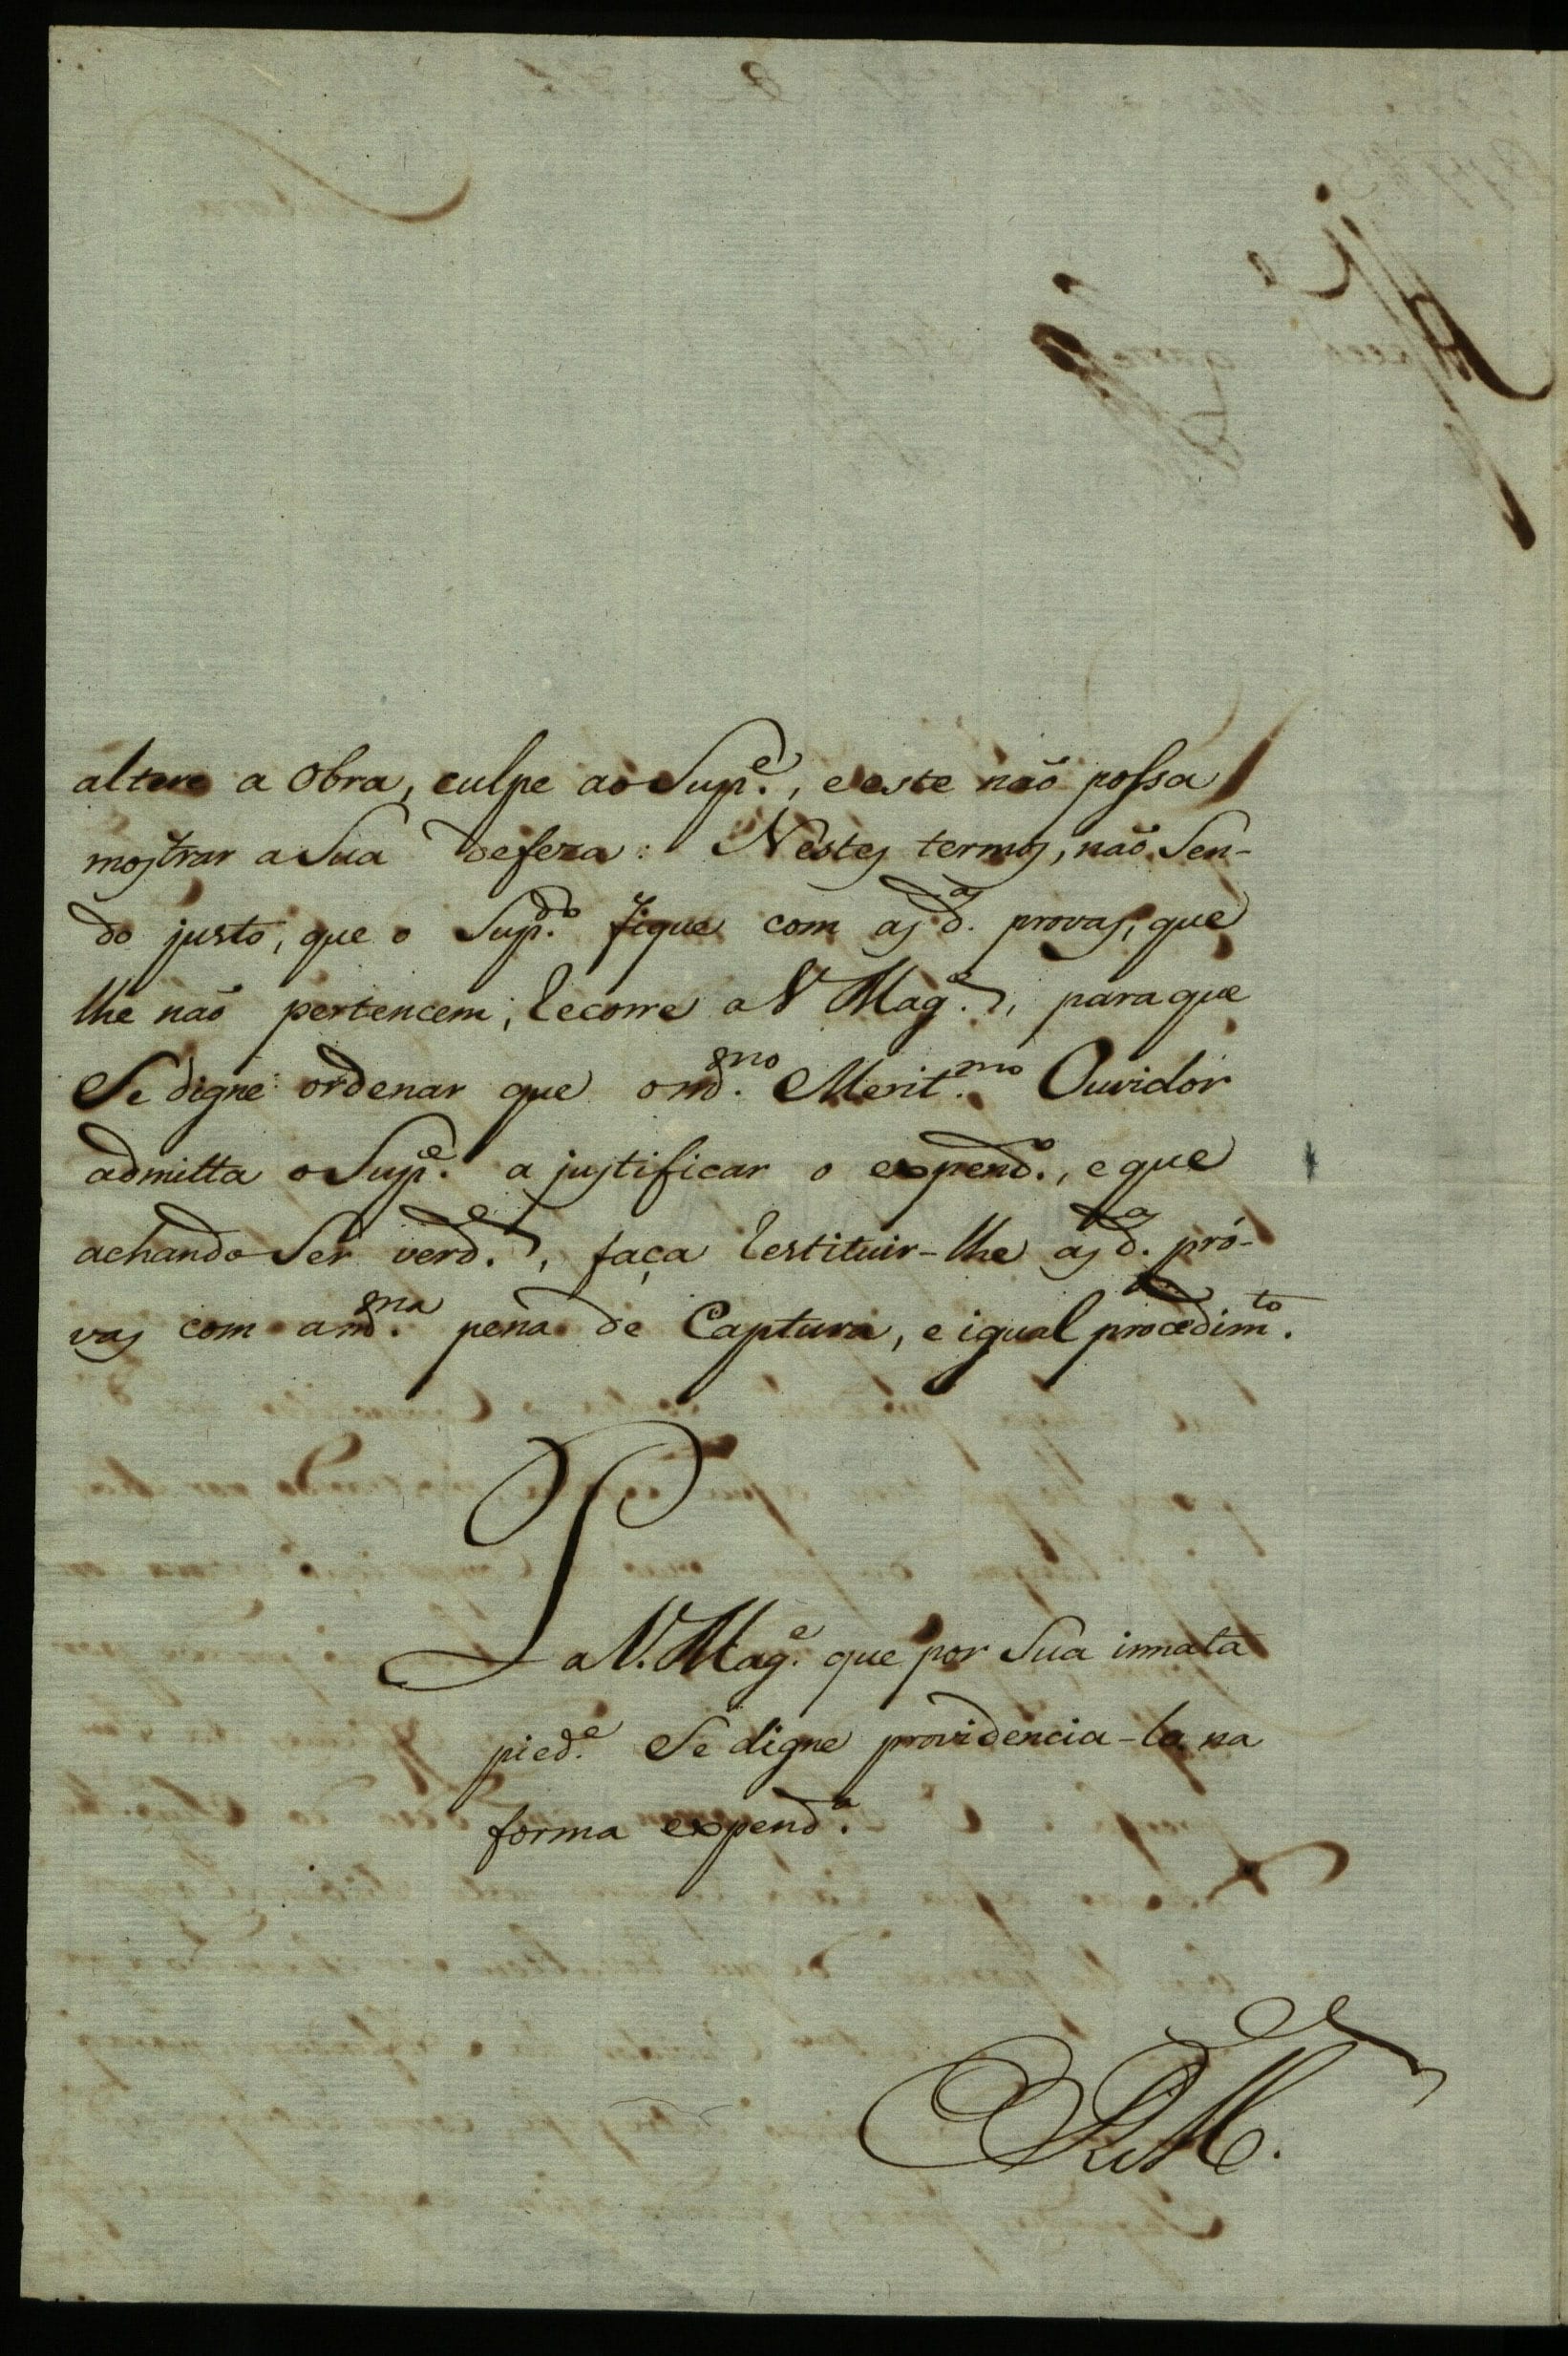 altere a Obra, culpe ao Sup.e, e este não possa
mostrar a Sua defeza: Nestes termos, não Sen-
do justo, que o Sup.do fique com as d.as provas, que
lhe não pertencem; recorre a V Mag.e, para que
Se digne ordenar que o md.mo Merit.mo Ouvidor
admitta o Sup.e a justificar o expend.o, e que
achando Ser verd.e, faça restituir-lhe as d.as pro-
vas com a md.ma pena de Captura, e igual procedim.to.
P
a V. Mag.e que por Sua innata
pied.e Se digne providencia-la na
forma expend.a
E R M.ce